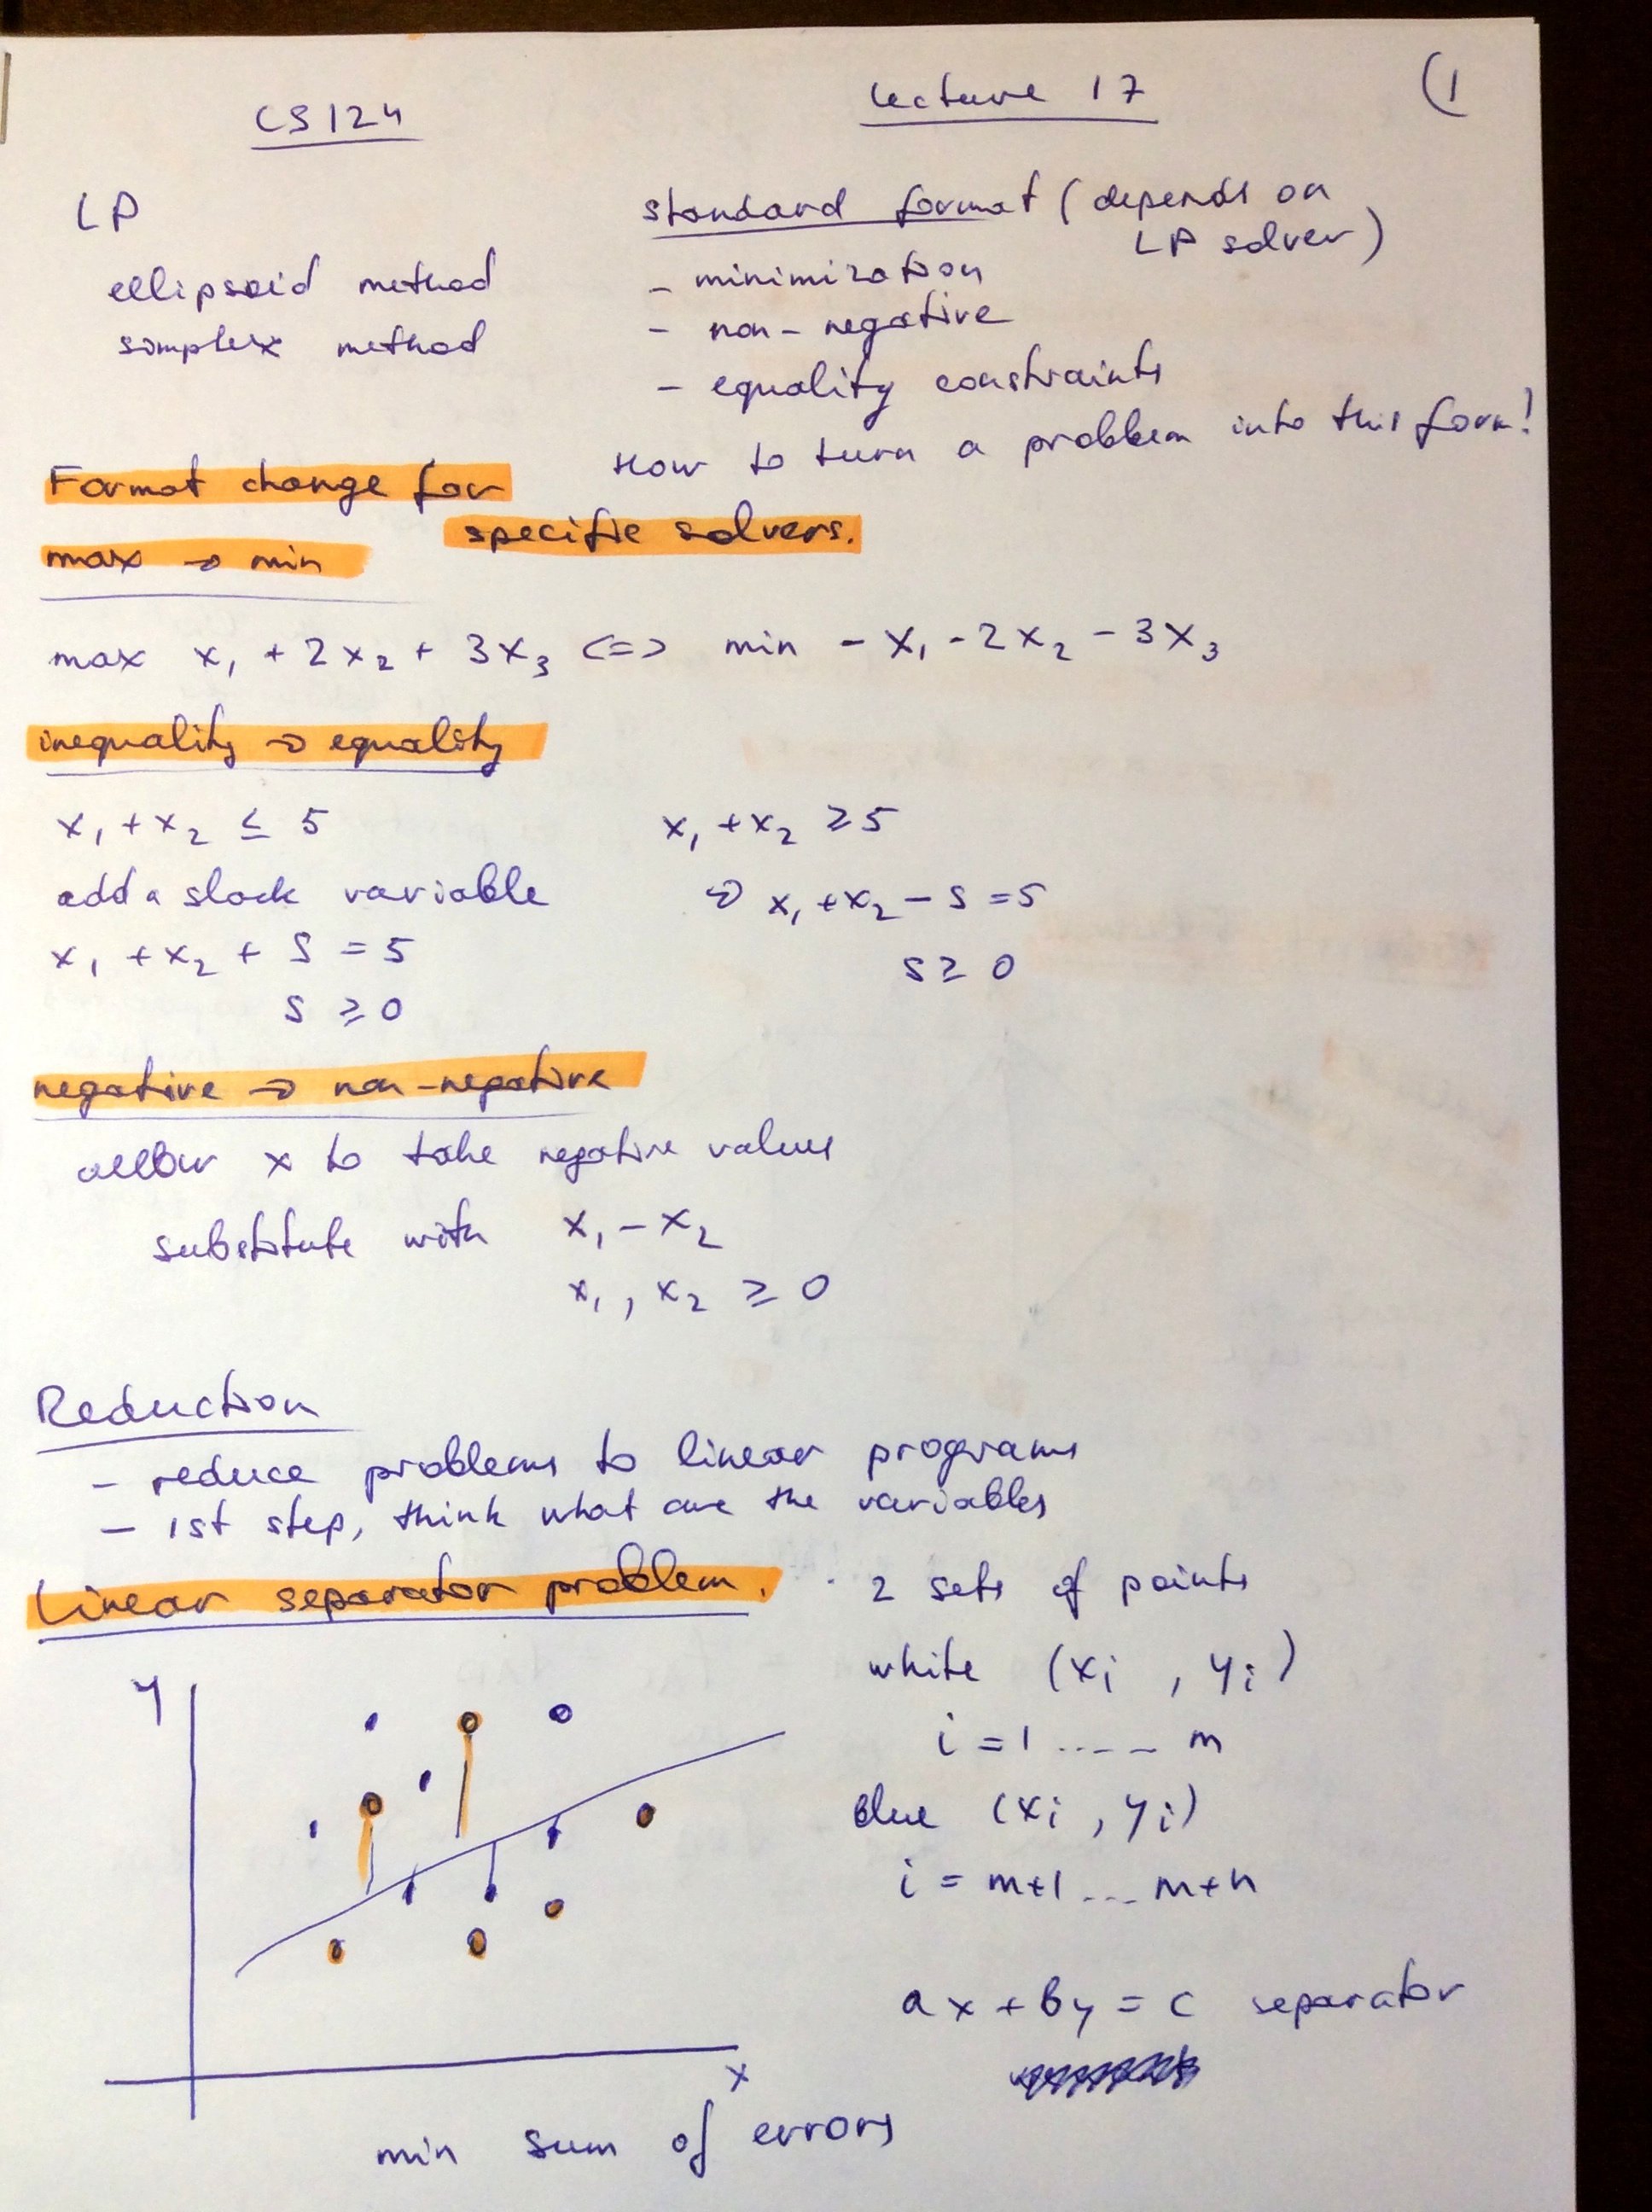 CS124
Lecture 17
(1
LP
ellipsoid method
simplex method
standard format (depends on
LP solver)
- minimization
- non-negative
- equality constraints
How to turn a problem into this form!
Format change for
specific solvers.
max → min
max x₁ + 2x₂ + 3x₃ <=> min - x₁ - 2x₂ - 3x₃
inequality → equality
x₁ + x₂ ≤ 5
add a slack variable
x₁ + x₂ + S = 5
S ≥ 0
x₁ + x₂ ≥ 5
→ x₁ + x₂ - S = 5
S ≥ 0
negative → non-negative
allow x to take negative values
substitute with x₁ - x₂
x₁, x₂ ≥ 0
Reduction
- reduce problems to linear programs
- 1st step, think what are the variables
Linear separator problem.
· 2 sets of points
white (xi, yi)
i = 1 ---- m
blue (xi, yi)
i = m+1 --- m+n
ax + by = c separator
y
x
min sum of errors